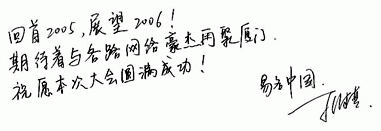 回首2005,展望2006!
期待着与各路网络豪杰再聚厦门.
祝愿本次大会圆满成功!
易名中国.